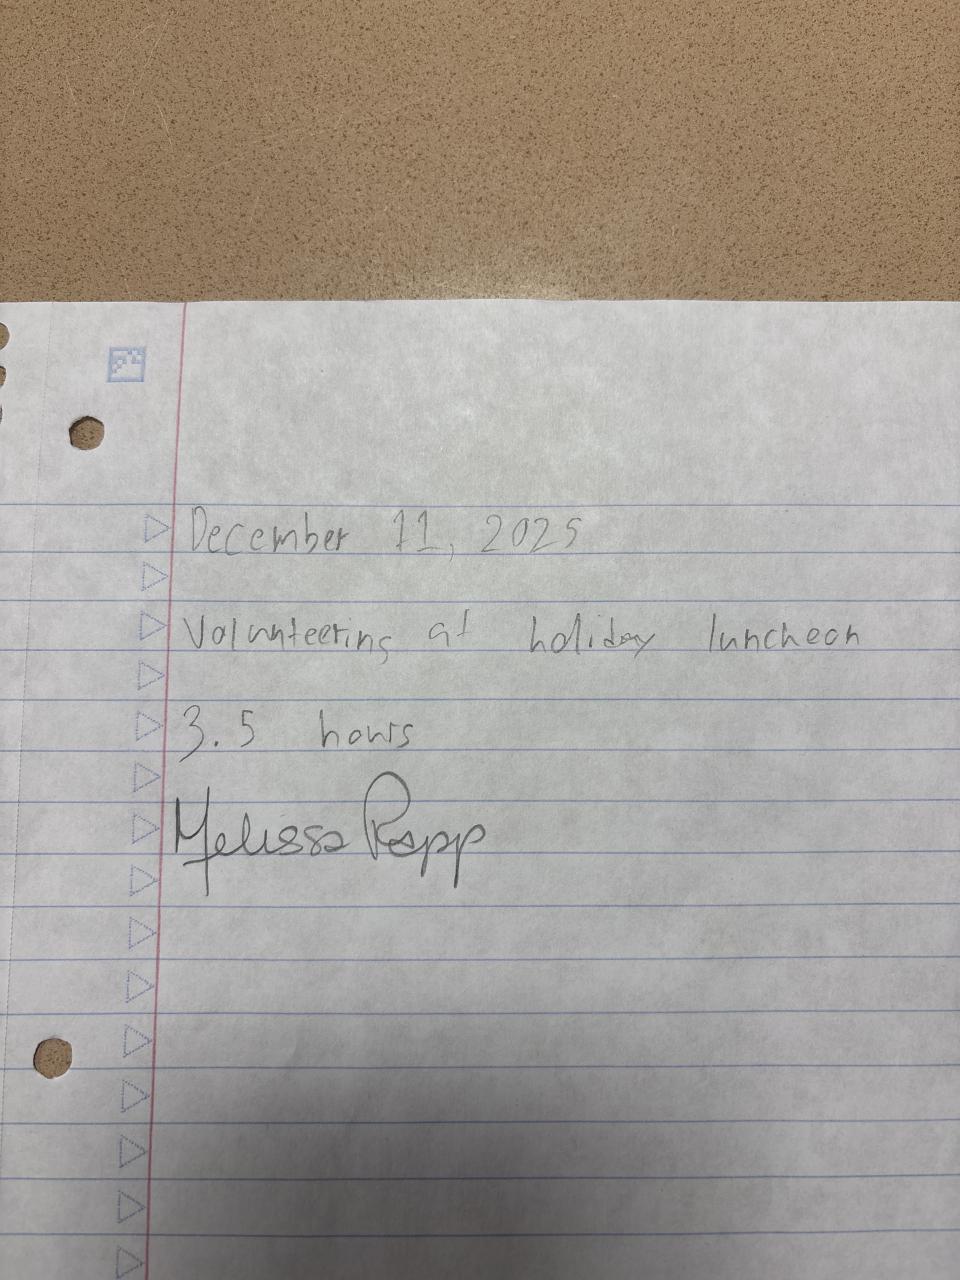 December 11, 2025
Volunteering at holiday luncheon
3.5 hours
Melissa Rapp